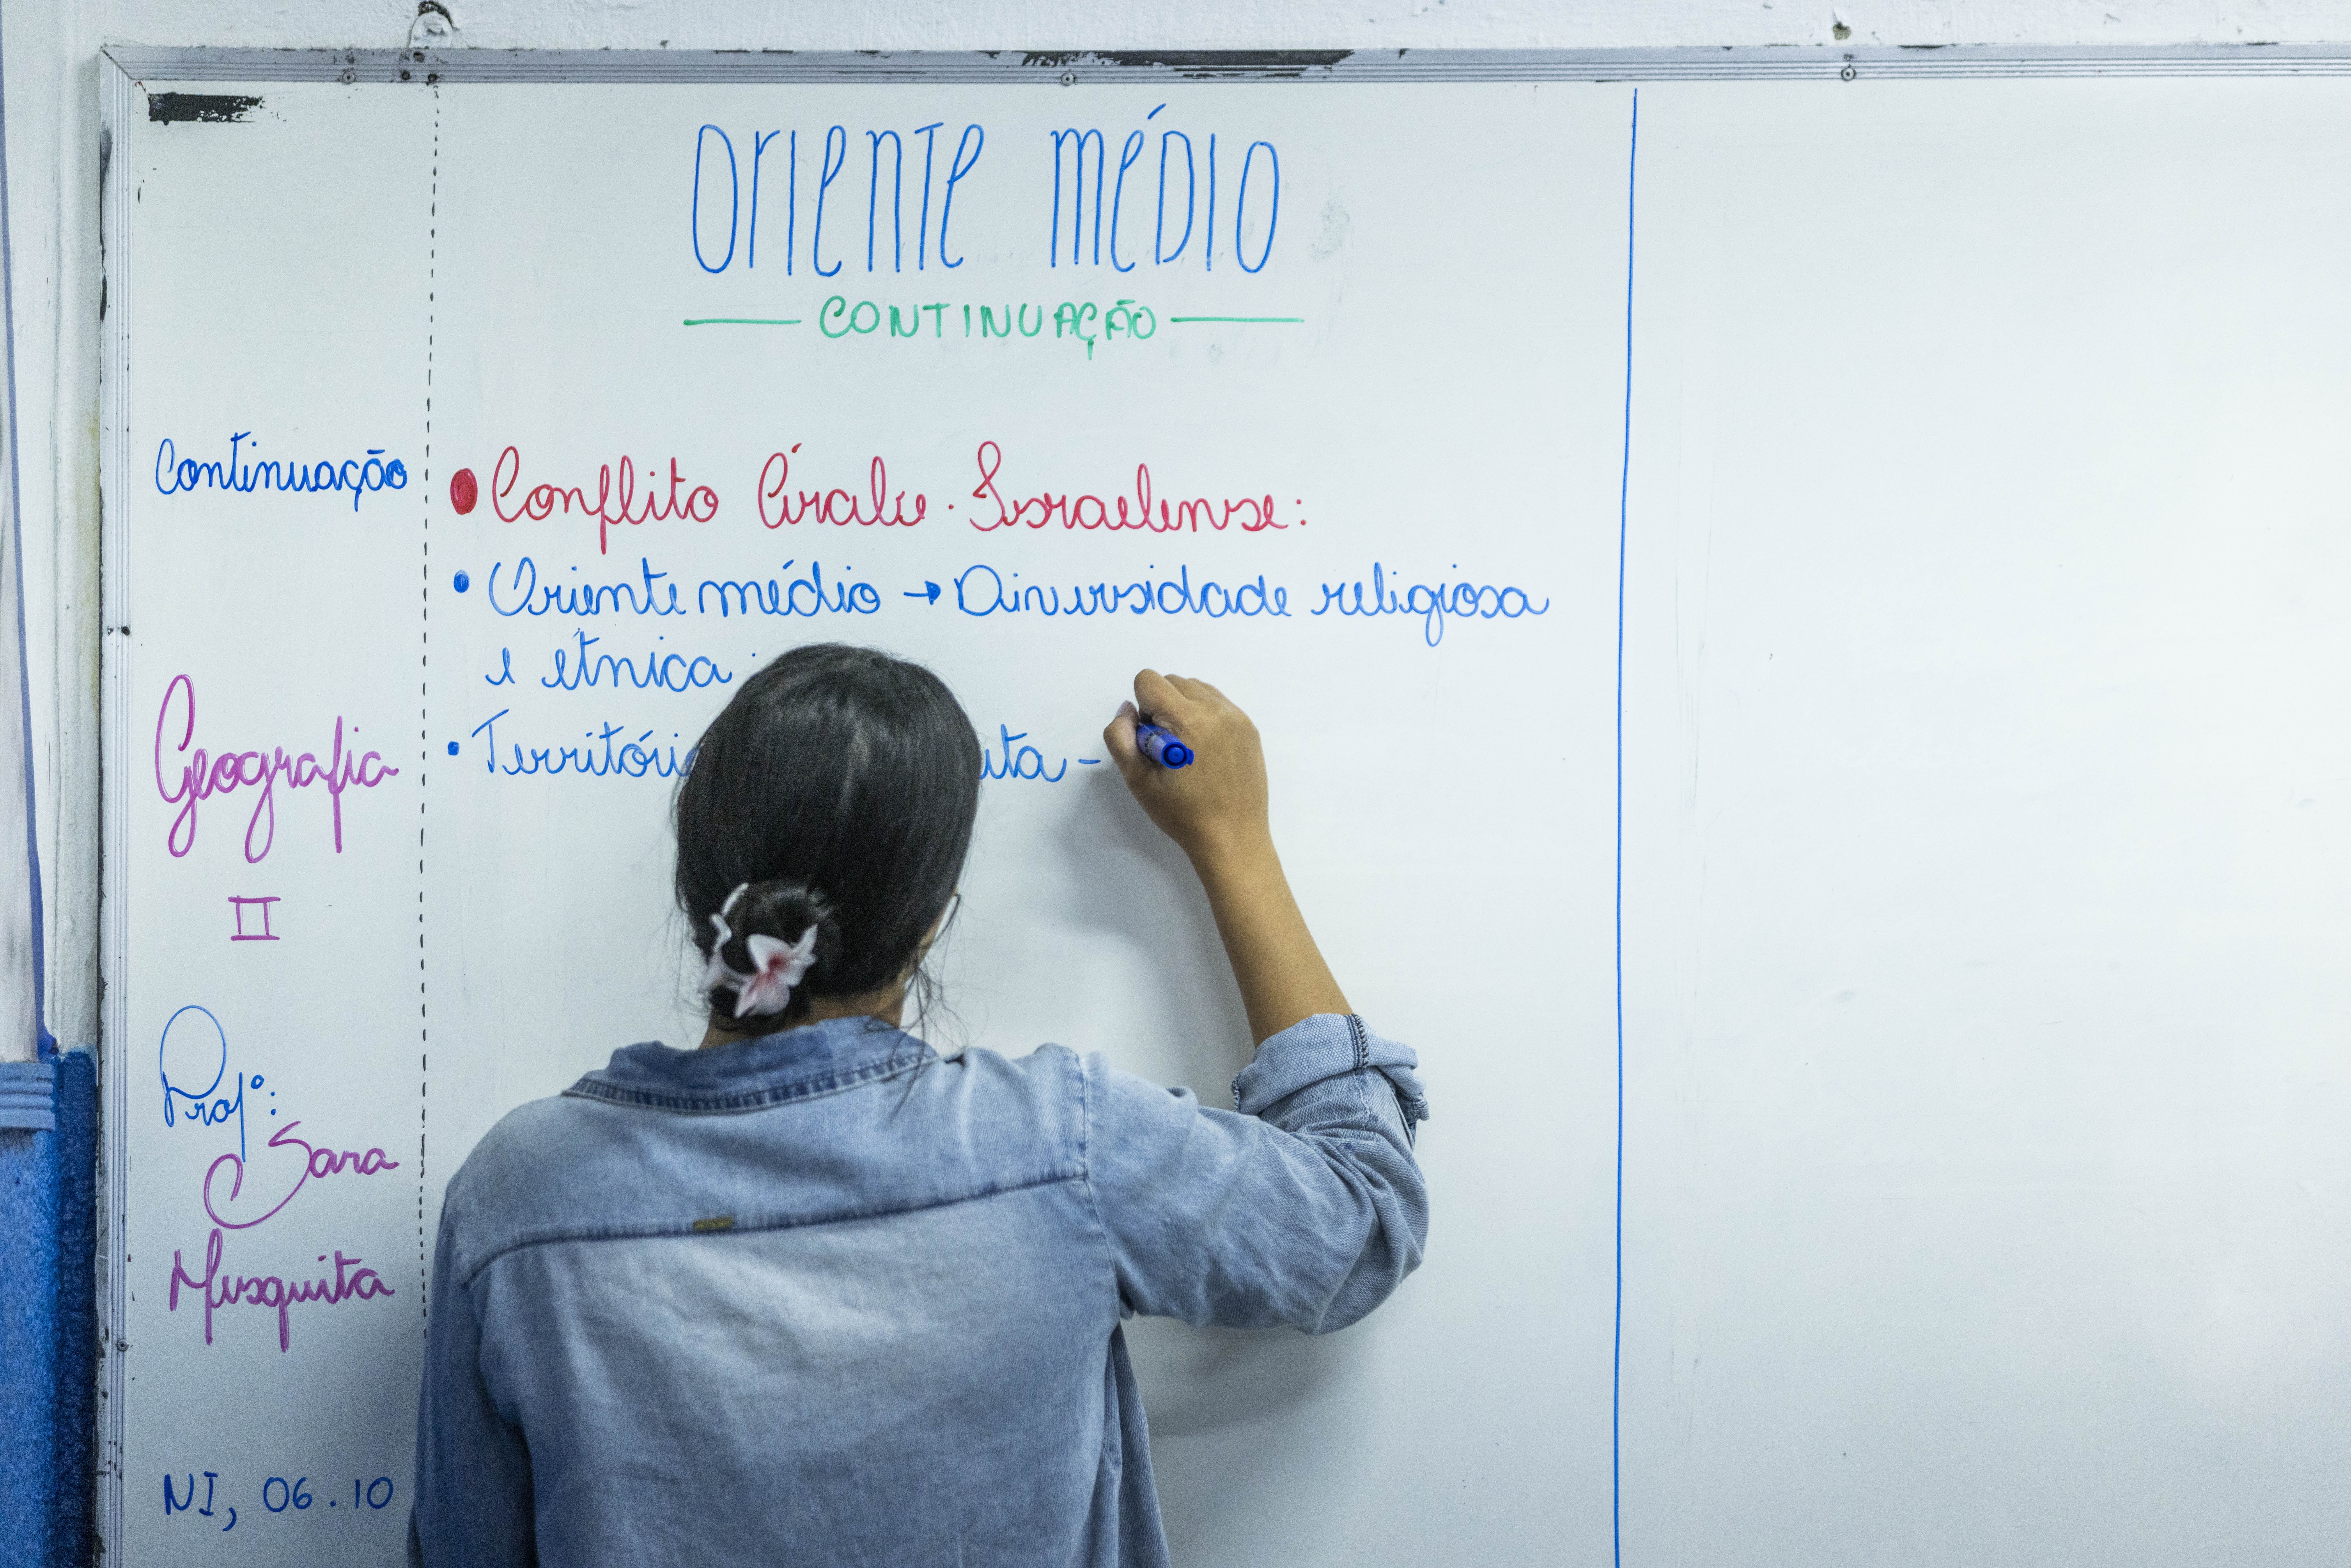 Oriente Médio
Continuação
Continuação
• Conflito Árabe-Israelense:
• Oriente médio → Diversidade religiosa
e étnica
• Território
Geografia
II
Profª:
Sara
Mesquita
NI, 06.10